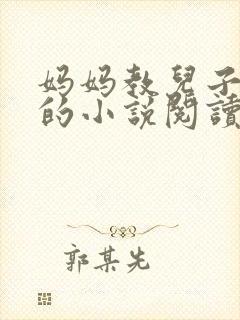 妈妈教兒子
的小說閱讀
郭某先